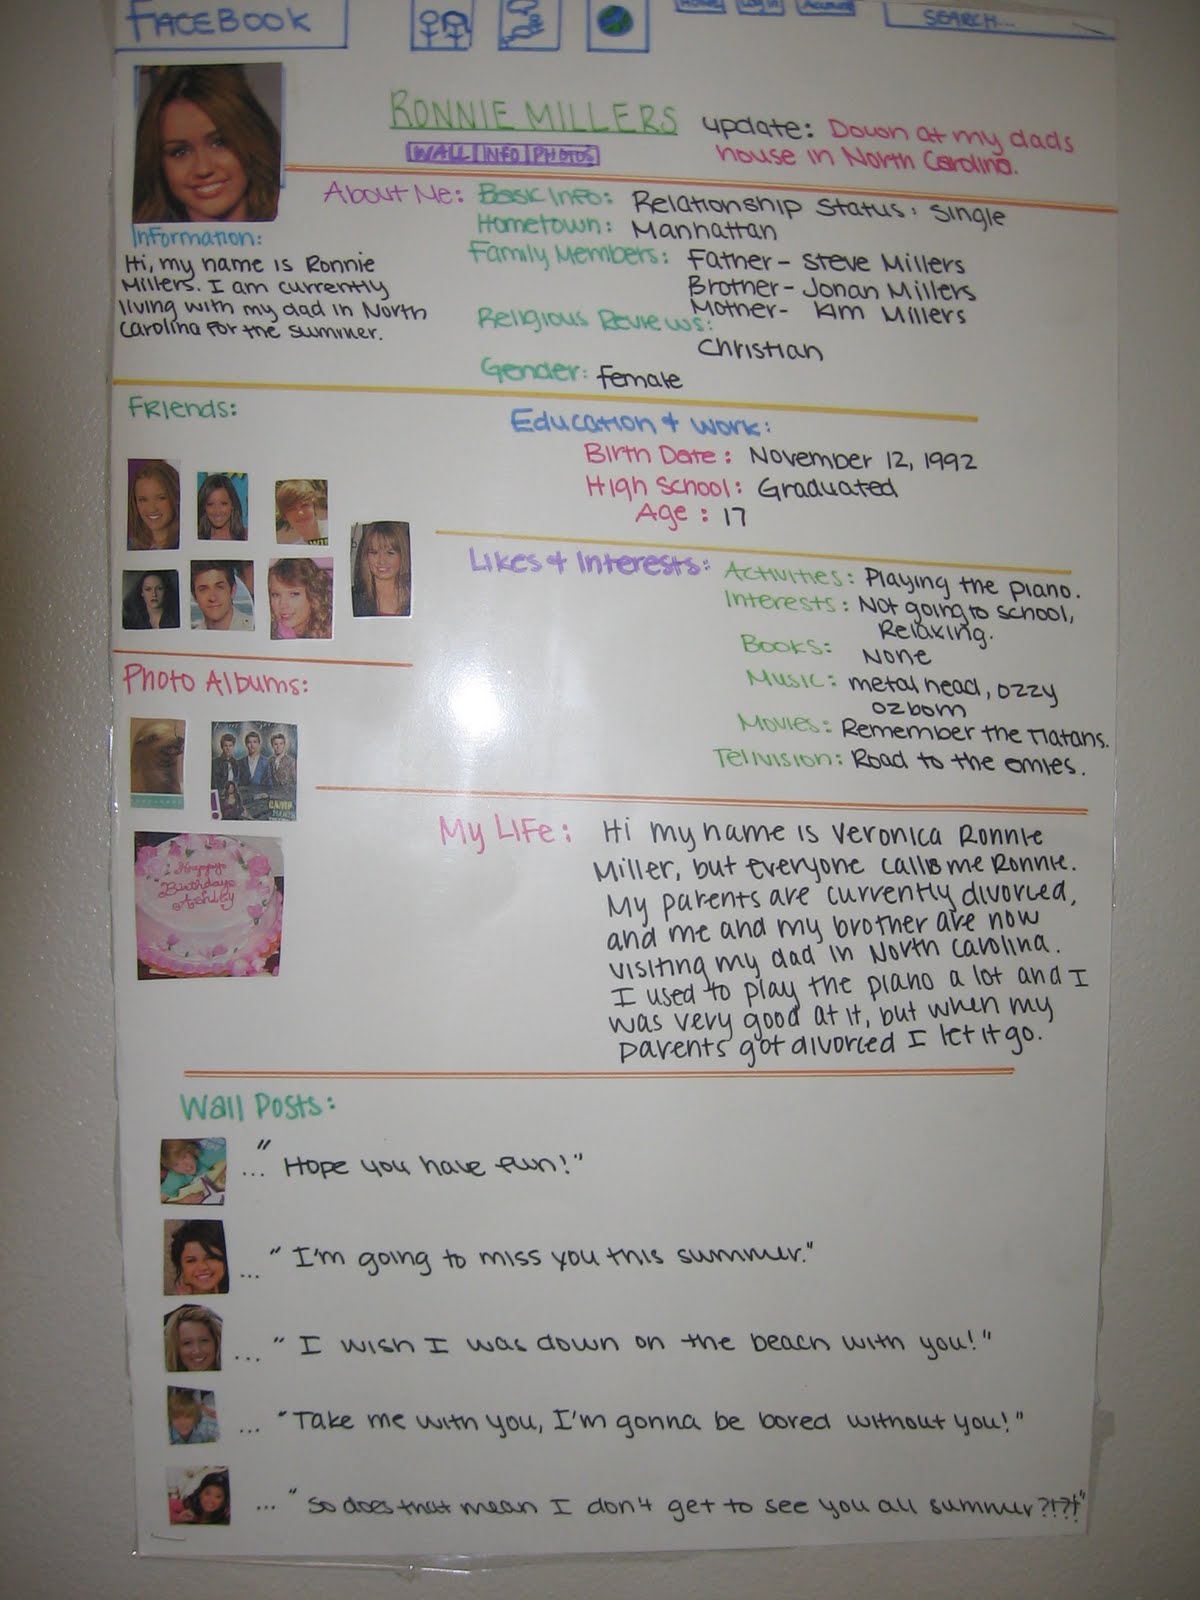 FACEBOOK
HOME LOG IN ACCOUNT
SEARCH...
RONNIE MILLERS
WALL INFO PHOTOS
update: Down at my dads
house in North Carolina.
About Me: Basic Info: Relationship Status: Single
Hometown: Manhattan
Family Members: Father- Steve Millers
Brother- Jonan Millers
Mother- Kim Millers
Religious Reviews:
Christian
Gender: female
Information:
Hi, my name is Ronnie
Millers. I am currently
living with my dad in North
Carolina for the summer.
Friends:
Education & work:
Birth Date: November 12, 1992
High School: Graduated
Age: 17
Likes & Interests: Activities: Playing the piano.
Interests: Not going to school,
Relaxing.
Books: None
Music: metal head, ozzy
ozborn
Movies: Remember the Tiatans.
Telivision: Road to the omies.
Photo Albums:
Happy
Birthday
Ashley
My Life: Hi my name is Veronica Ronnie
Miller, but everyone calls me Ronnie.
My parents are currently divorced,
and me and my brother are now
visiting my dad in North Carolina.
I used to play the piano a lot and I
was very good at it, but when my
parents got divorced I let it go.
Wall Posts:
..."Hope you have fun!"
..."I'm going to miss you this summer."
..."I wish I was down on the beach with you!"
..."Take me with you, I'm gonna be bored without you!"
..."So does that mean I don't get to see you all summer?!?!"